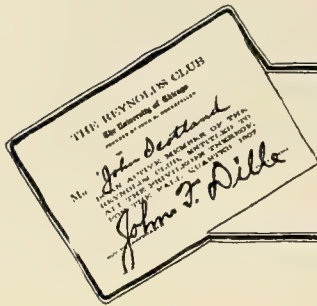 THE REYNOLDS CLUB
The University of Chicago
FOUNDED BY JOHN D. ROCKEFELLER
Mr. John
IS AN ACTIVE MEMBER OF THE
REYNOLDS CLUB, ENTITLED TO
ALL THE PRIVILEGES THEREOF,
FOR THE FALL QUARTER 1907
John F. Dille